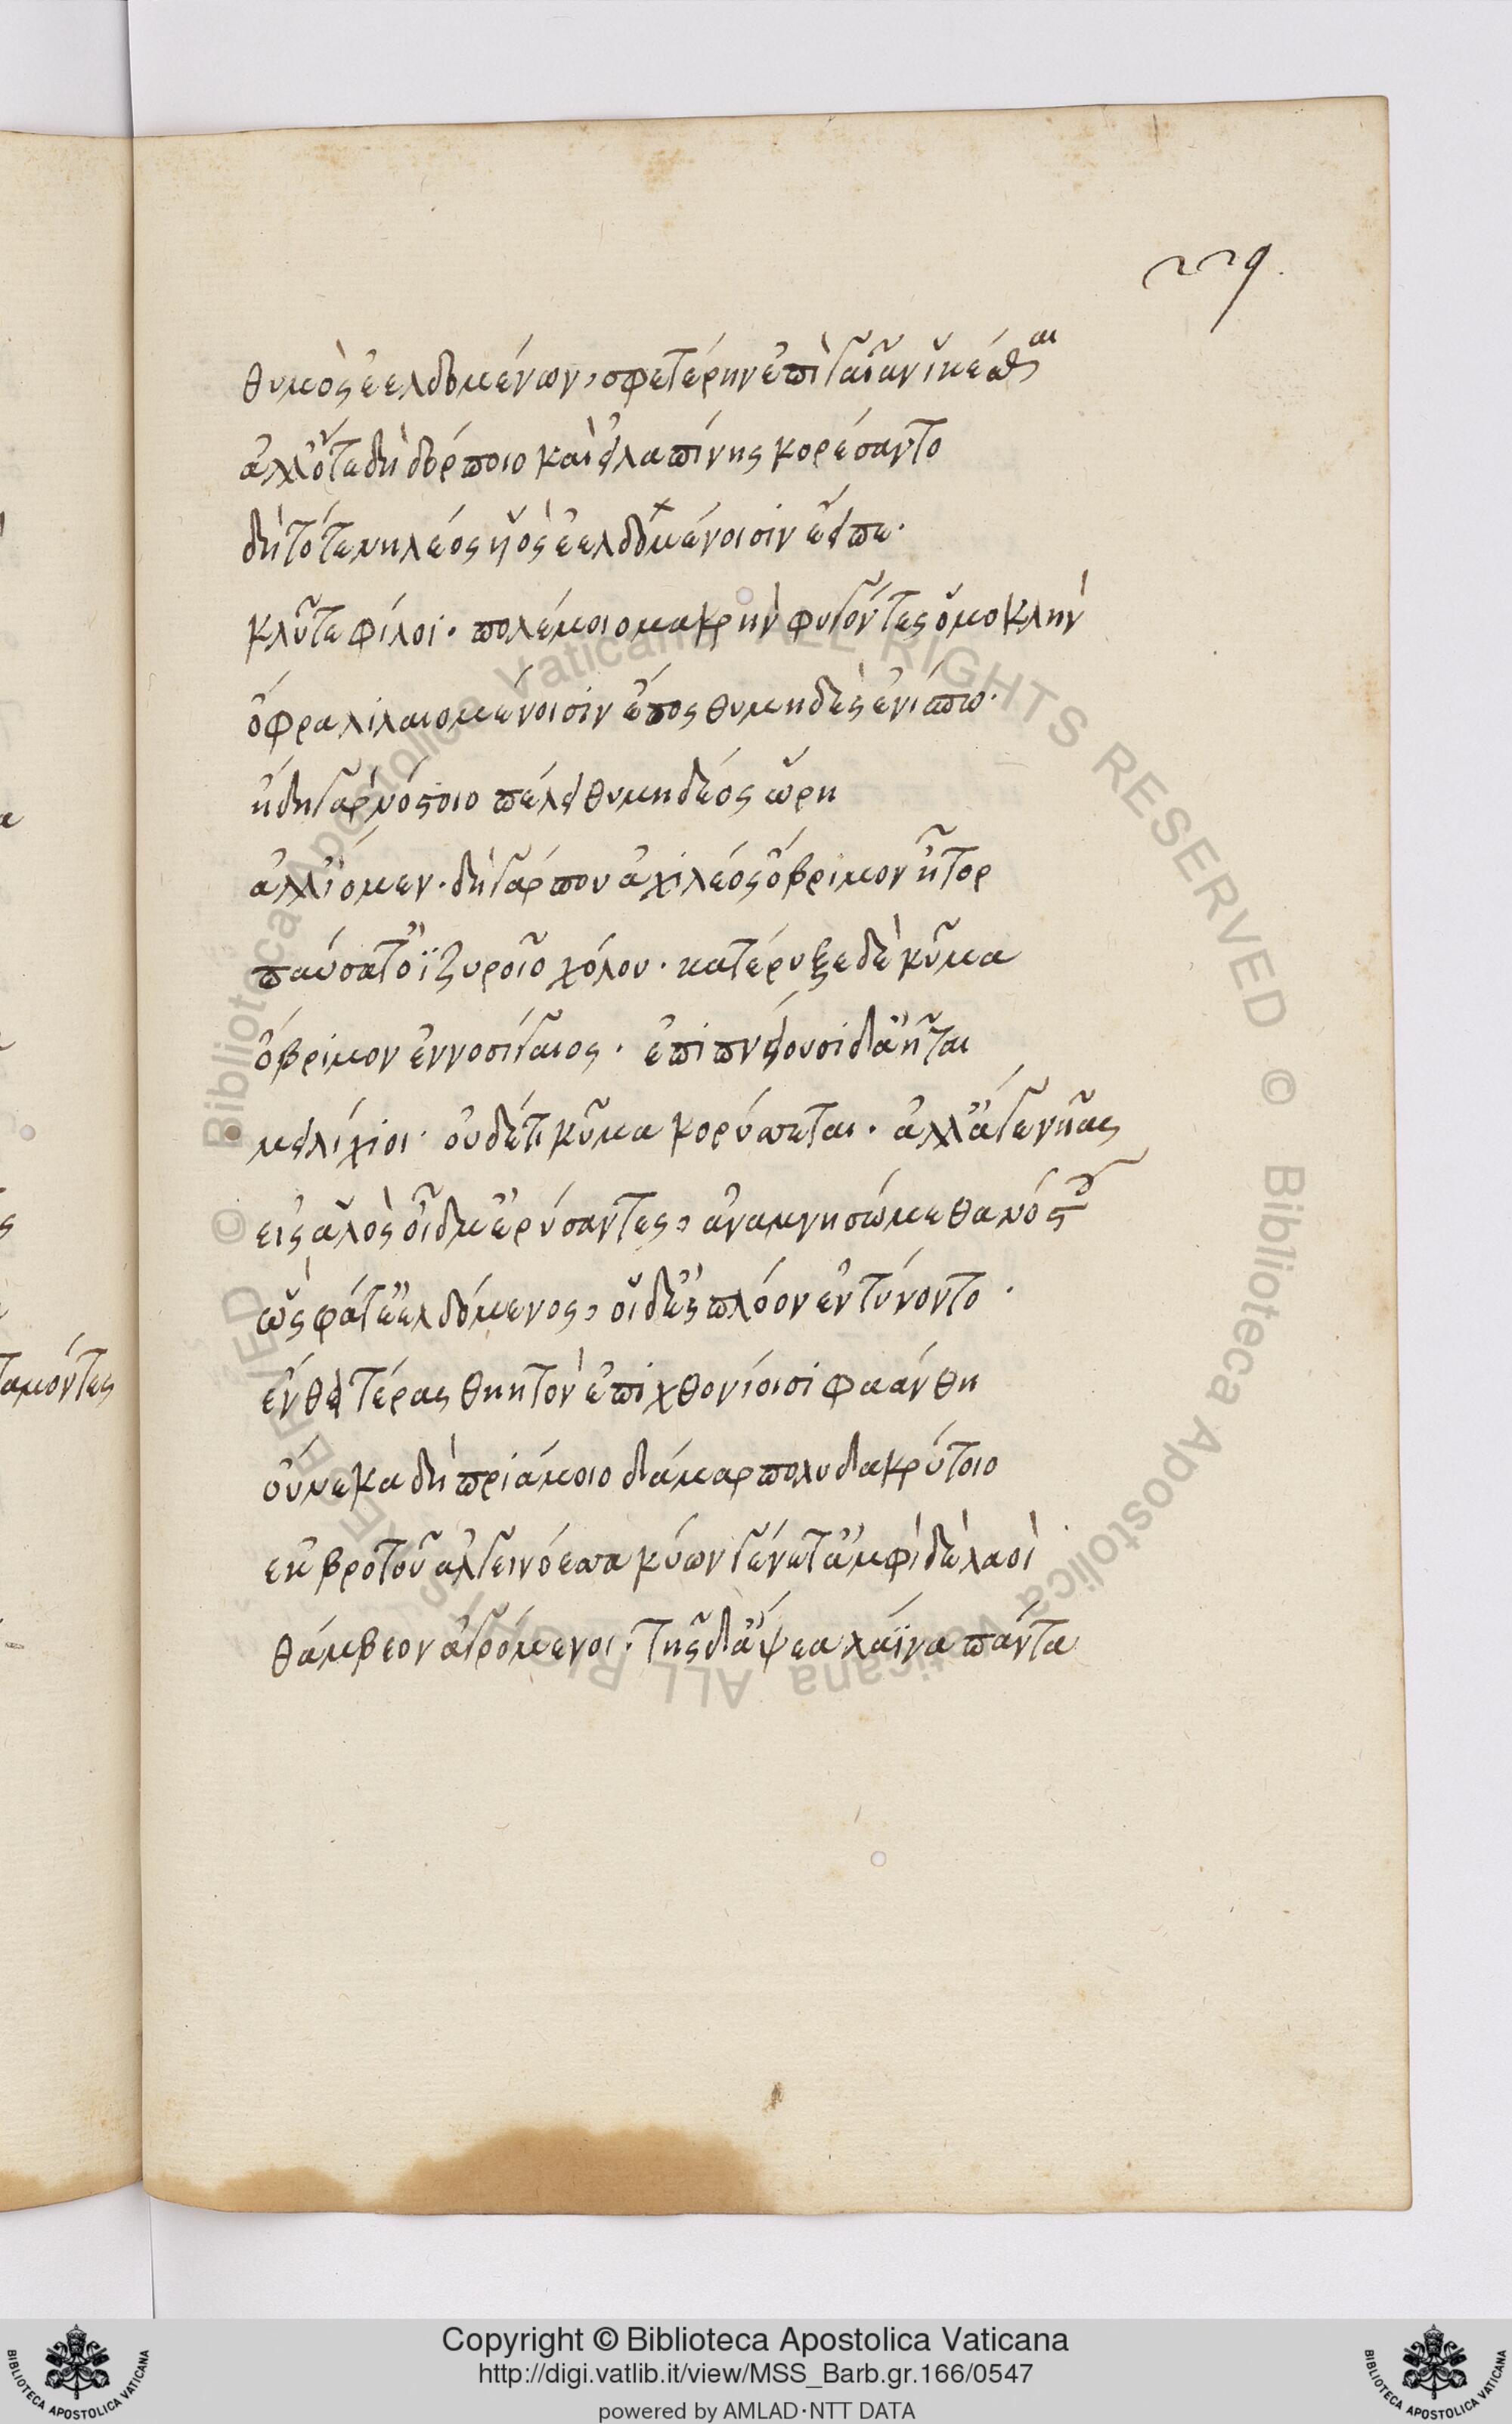 229.
θυμὸς ἐελδομένων, σφετέρην ἐπὶ γαῖαν ἱκέσθαι
ἀλλ' ὅτε δὴ δόρποιο καὶ εἰλαπίνης κορέσαντο
δὴ τότε νηλέος ἧος ἐελδομένοισιν ἔειπε·
κλῦτε φίλοι· πολέμοιο μακρὴν φυγόντες ὁμοκλὴν
ὄφρα λιλαιομένοισιν ἔπος θυμηδὲς ἐνίσπω·
ἤδη γὰρ νόστοιο πέλει θυμηδέος ὥρη
ἀλλ' ἴομεν· δὴ γάρ που ἀχιλέος ὄβριμον ἦτορ
παύσατ' ὀϊζυροῖο χόλου· κατέρυξε δὲ κῦμα
ὄβριμον ἐννοσίγαιος· ἐπιπνείουσι δ' ἀῆται
μειλίχιοι· οὐδ' ἔτι κῦμα κορύσσεται· ἀλλ' ἄγε νῆας
εἰς ἁλὸς οἶδμ' ἐρύσαντες, ἀναμνησώμεθα νόστου
ὣς φάτ' ἐελδόμενος, οἱ δ' ἐς πλόον ἐντύνοντο·
ἔνθα τέρας θηητὸν ἐπιχθονίοισι φαάνθη
οὕνεκα δὴ πριάμοιο δάμαρ πολυδακρύτοιο
ἐκ βροτοῦ ἀλγεινόεσσα κύων γένετ' ἀμφὶ δὲ λαοὶ
θάμβεον ἀγρόμενοι· τῆς δ' ἅψεα λάϊνα πάντα
ταμόντες
Copyright © Biblioteca Apostolica Vaticana
http://digi.vatlib.it/view/MSS_Barb.gr.166/0547
powered by AMLAD·NTT DATA
© Biblioteca Apostolica Vaticana ALL RIGHTS RESERVED © Biblioteca Apostolica Vaticana ALL RIGHTS RESERVED
BIBLIOTECA APOSTOLICA VATICANA
BIBLIOTECA APOSTOLICA VATICANA